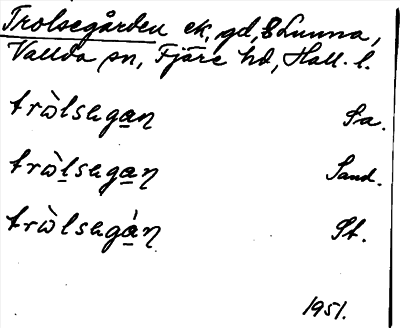 Trolsegården ek, gd, Lunna,
Vallda sn, Fjäre hd, Hall. l.
trὼlsegaꞑ Sa.
trὼlsegaꞑ Sand.
trὼlsegàꞑ St.
1951.